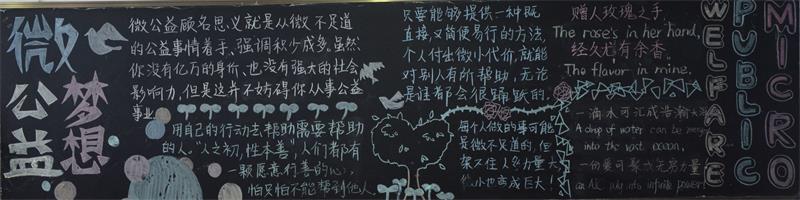 微公益
梦想
微公益顾名思义就是从微不足道
的公益事情着手、强调积少成多。虽然
你没有亿万的身价、也没有强大的社会
影响力,但是这并不妨碍你从事公益
事业
用自己的行动去帮助需要帮助
的人。"人之初,性本善"人们都有
一颗愿意行善的心,
怕只怕不能帮到他人
只要能够提供一种既
直接又简便易行的方法,
个人付出微小代价,就能
对别人有所帮助,无论
是谁都会很踊跃的.
每个人做的事可能
是微不足道的,但
架不住人多力量大
小也变成巨大!
赠人玫瑰之手
The rose's in her hand,
经久犹有余香
The flavor in mine.
一滴水可汇成浩瀚大
A drop of water can be
into the vast ocean,
一份爱可聚成无穷力量
into infinite power!
WELFARE
PUBLIC
MICRO